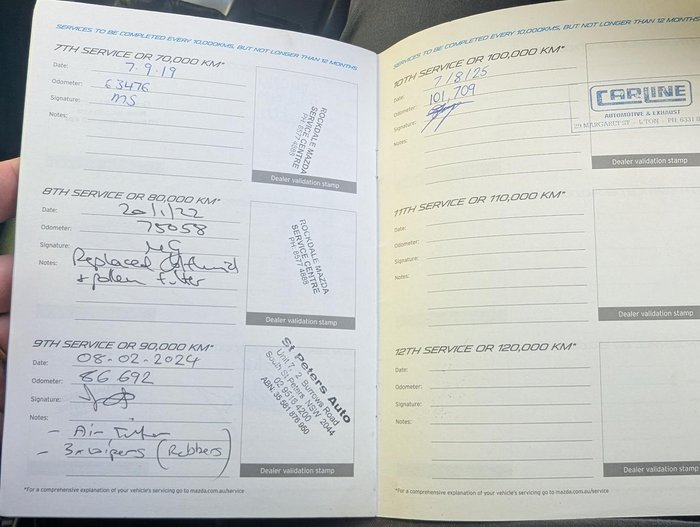 SERVICES TO BE COMPLETED EVERY 10,000KMS, BUT NOT LONGER THAN 12 MONTHS
7TH SERVICE OR 70,000 KM*
Date: 7.9.19
Odometer: 63476
Signature: MS
Notes:
ROCKDALE MAZDA
SERVICE CENTRE
PH: 8577 4888
Dealer validation stamp
8TH SERVICE OR 80,000 KM*
Date: 20/1/22
Odometer: 75058
Signature: MG
Notes: Replaced
+ pollen filter
ROCKDALE MAZDA
SERVICE CENTRE
PH: 8577 4888
Dealer validation stamp
9TH SERVICE OR 90,000 KM*
Date: 08-02-2024
Odometer: 86 692
Signature:
Notes:
- Air Filter
- 3x wipers (Rubbers)
St Peters Auto
Unit 7, 2 Burrows Road
South St Peters NSW 2044
02 9516 4200
ABN: 35 581 876 950
Dealer validation stamp
*For a comprehensive explanation of your vehicle's servicing go to mazda.com.au/service
SERVICES TO BE COMPLETED EVERY 10,000KMS, BUT NOT LONGER THAN 12 MONTHS
10TH SERVICE OR 100,000 KM*
Date: 7/8/25
Odometer: 101,709
Signature:
Notes:
CARLINE
AUTOMOTIVE & EXHAUST
29 MARGARET ST - L'TON - PH: 6331
Dealer validation stamp
11TH SERVICE OR 110,000 KM*
Date:
Odometer:
Signature:
Notes:
Dealer validation stamp
12TH SERVICE OR 120,000 KM*
Date:
Odometer:
Signature:
Notes:
Dealer validation stamp
*For a comprehensive explanation of your vehicle's servicing go to mazda.com.au/service